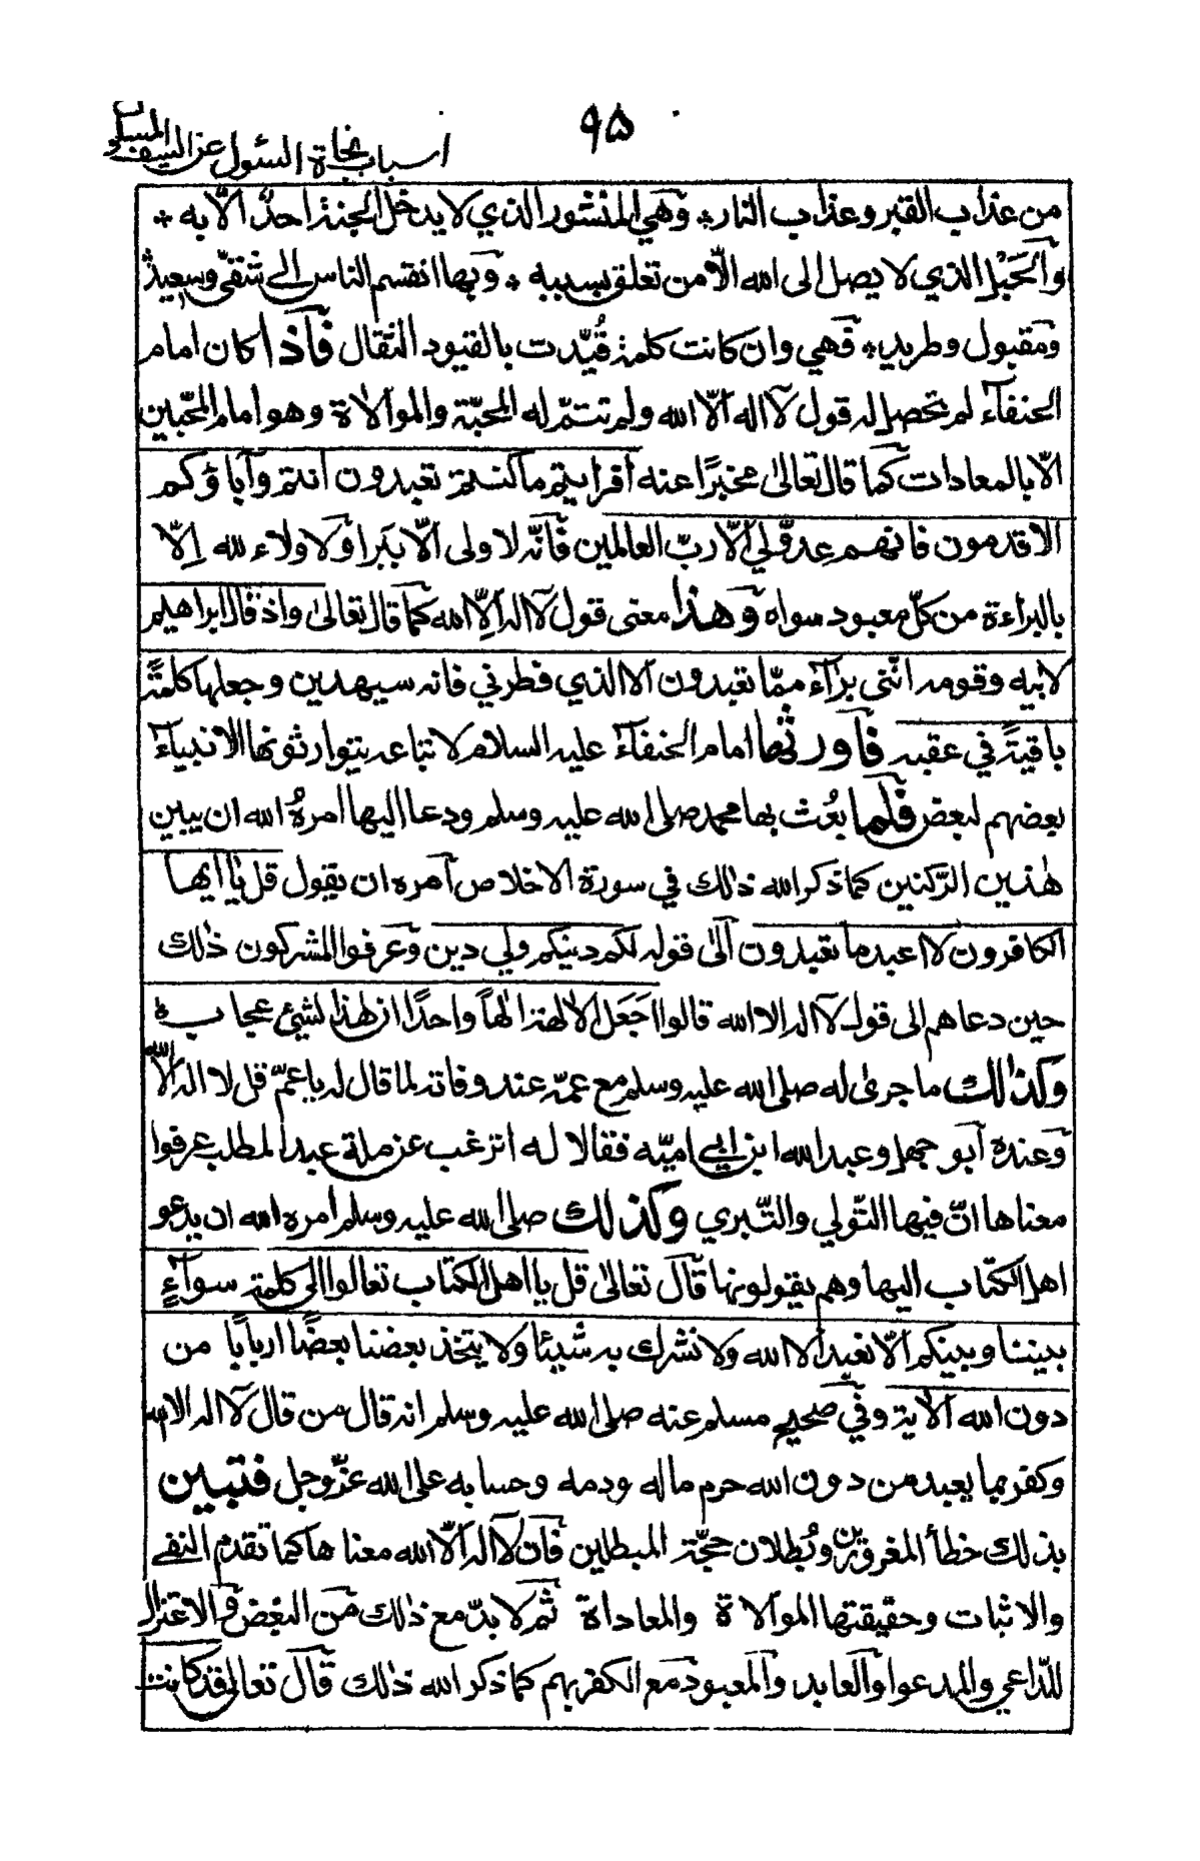 ۹۵
اسباب نجاة السئول عن السيف المسلول
من عذاب القبر وعذاب النار * وهي المنشور الذي لا يدخل الجنة احدٌ الّا به *
والحَبْل الذي لا يصل الى الله الّا من تعلق بسببه * وبها انقسم الناس الى شقيّ وسعيدٍ
ومقبول وطريد * فهي وان كانت كلمة قُيّدت بالقيود الثقال فاذا كان امام
الحنفآء لم تحصل له قول لآ اله الّا الله ولم تتمّ له المحبّة والموالاة وهو امام المحبّين
الّا بالمعادات كما قال تعالىٰ مخبرًا عنه أفرايتم ما كنتم تعبدون انتم وآباؤكم
الاقدمون فانهم عدوّلي الّا ربّ العالمين فانّه لا ولى الّا ببَرا ولا ولاء لله إلّا
بالبراءة من كلّ معبود سواه وهذا معنى قول لآ اله الّا الله كما قال تعالىٰ واذ قال ابراهيم
لابيه وقومه انّنى برآء ممّا تعبدون الا الذي فطرني فانه سيهدين وجعلها كلمةً
باقيةً في عقبه فاورثها امام الحنفآء عليه السلام لاتباعه يتوارثونها الانبيآء
بعضهم لبعض فلما بُعث بها محمد صلى الله عليه وسلم ودعا اليها امرهُ الله ان يبين
هٰذين الرّكنين كما ذكر الله ذالك في سورة الاخلاص آمره ان يقول قل يٰا ايها
الكافرون لا اعبد ما تعبدون الىٰ قوله لكم دينكم ولي دين وعرفوا المشركون ذٰلك
حين دعاهم الى قول لآ اله الا الله قالوا اجَعَل الالهة الٰهًا واحدًا ان هٰذا لشئ عجاب
وكذالك ما جرىٰ له صلى الله عليه وسلم مع عمّه عند وفاته لما قال له يا عمّ قل لا اله الّا الله
وعنده ابو جهل وعبد الله ابن ابي اميّه فقالا له اترغب عن ملة عبد المطلب عرفوا
معناها انّ فيها التّولي والتّبري وكذلك صلى الله عليه وسلم امره الله ان يدعو
اهل الكتاب اليها وهم يقولونها قال تعالىٰ قل يا اهل الكتاب تعالوا الى كلمة سوآءٍ
بيننا وبينكم الّا نعبد الا الله ولا نشرك به شيئا ولا يتخذ بعضنا بعضًا اربابًا من
دون الله الآية وفي صحيح مسلم عنه صلى الله عليه وسلم انه قال من قال لآ اله الا الله
وكفر بما يعبد من دون الله حرم ماله ودمه وحسابه على الله عزّوجل فتبين
بذلك خطأ المغرورين وبُطلان حجّة المبطلين فان لآ اله الّا الله معناها كما تقدم النفي
والاثبات وحقيقتها الموالاة والمعاداة ثم لا بدّ مع ذٰلك من البغض والاعتزال
للدّاعي والمدعوا والعابد والمعبود مع الكفر بهم كما ذكر الله ذٰلك قال تعالى قد كانت